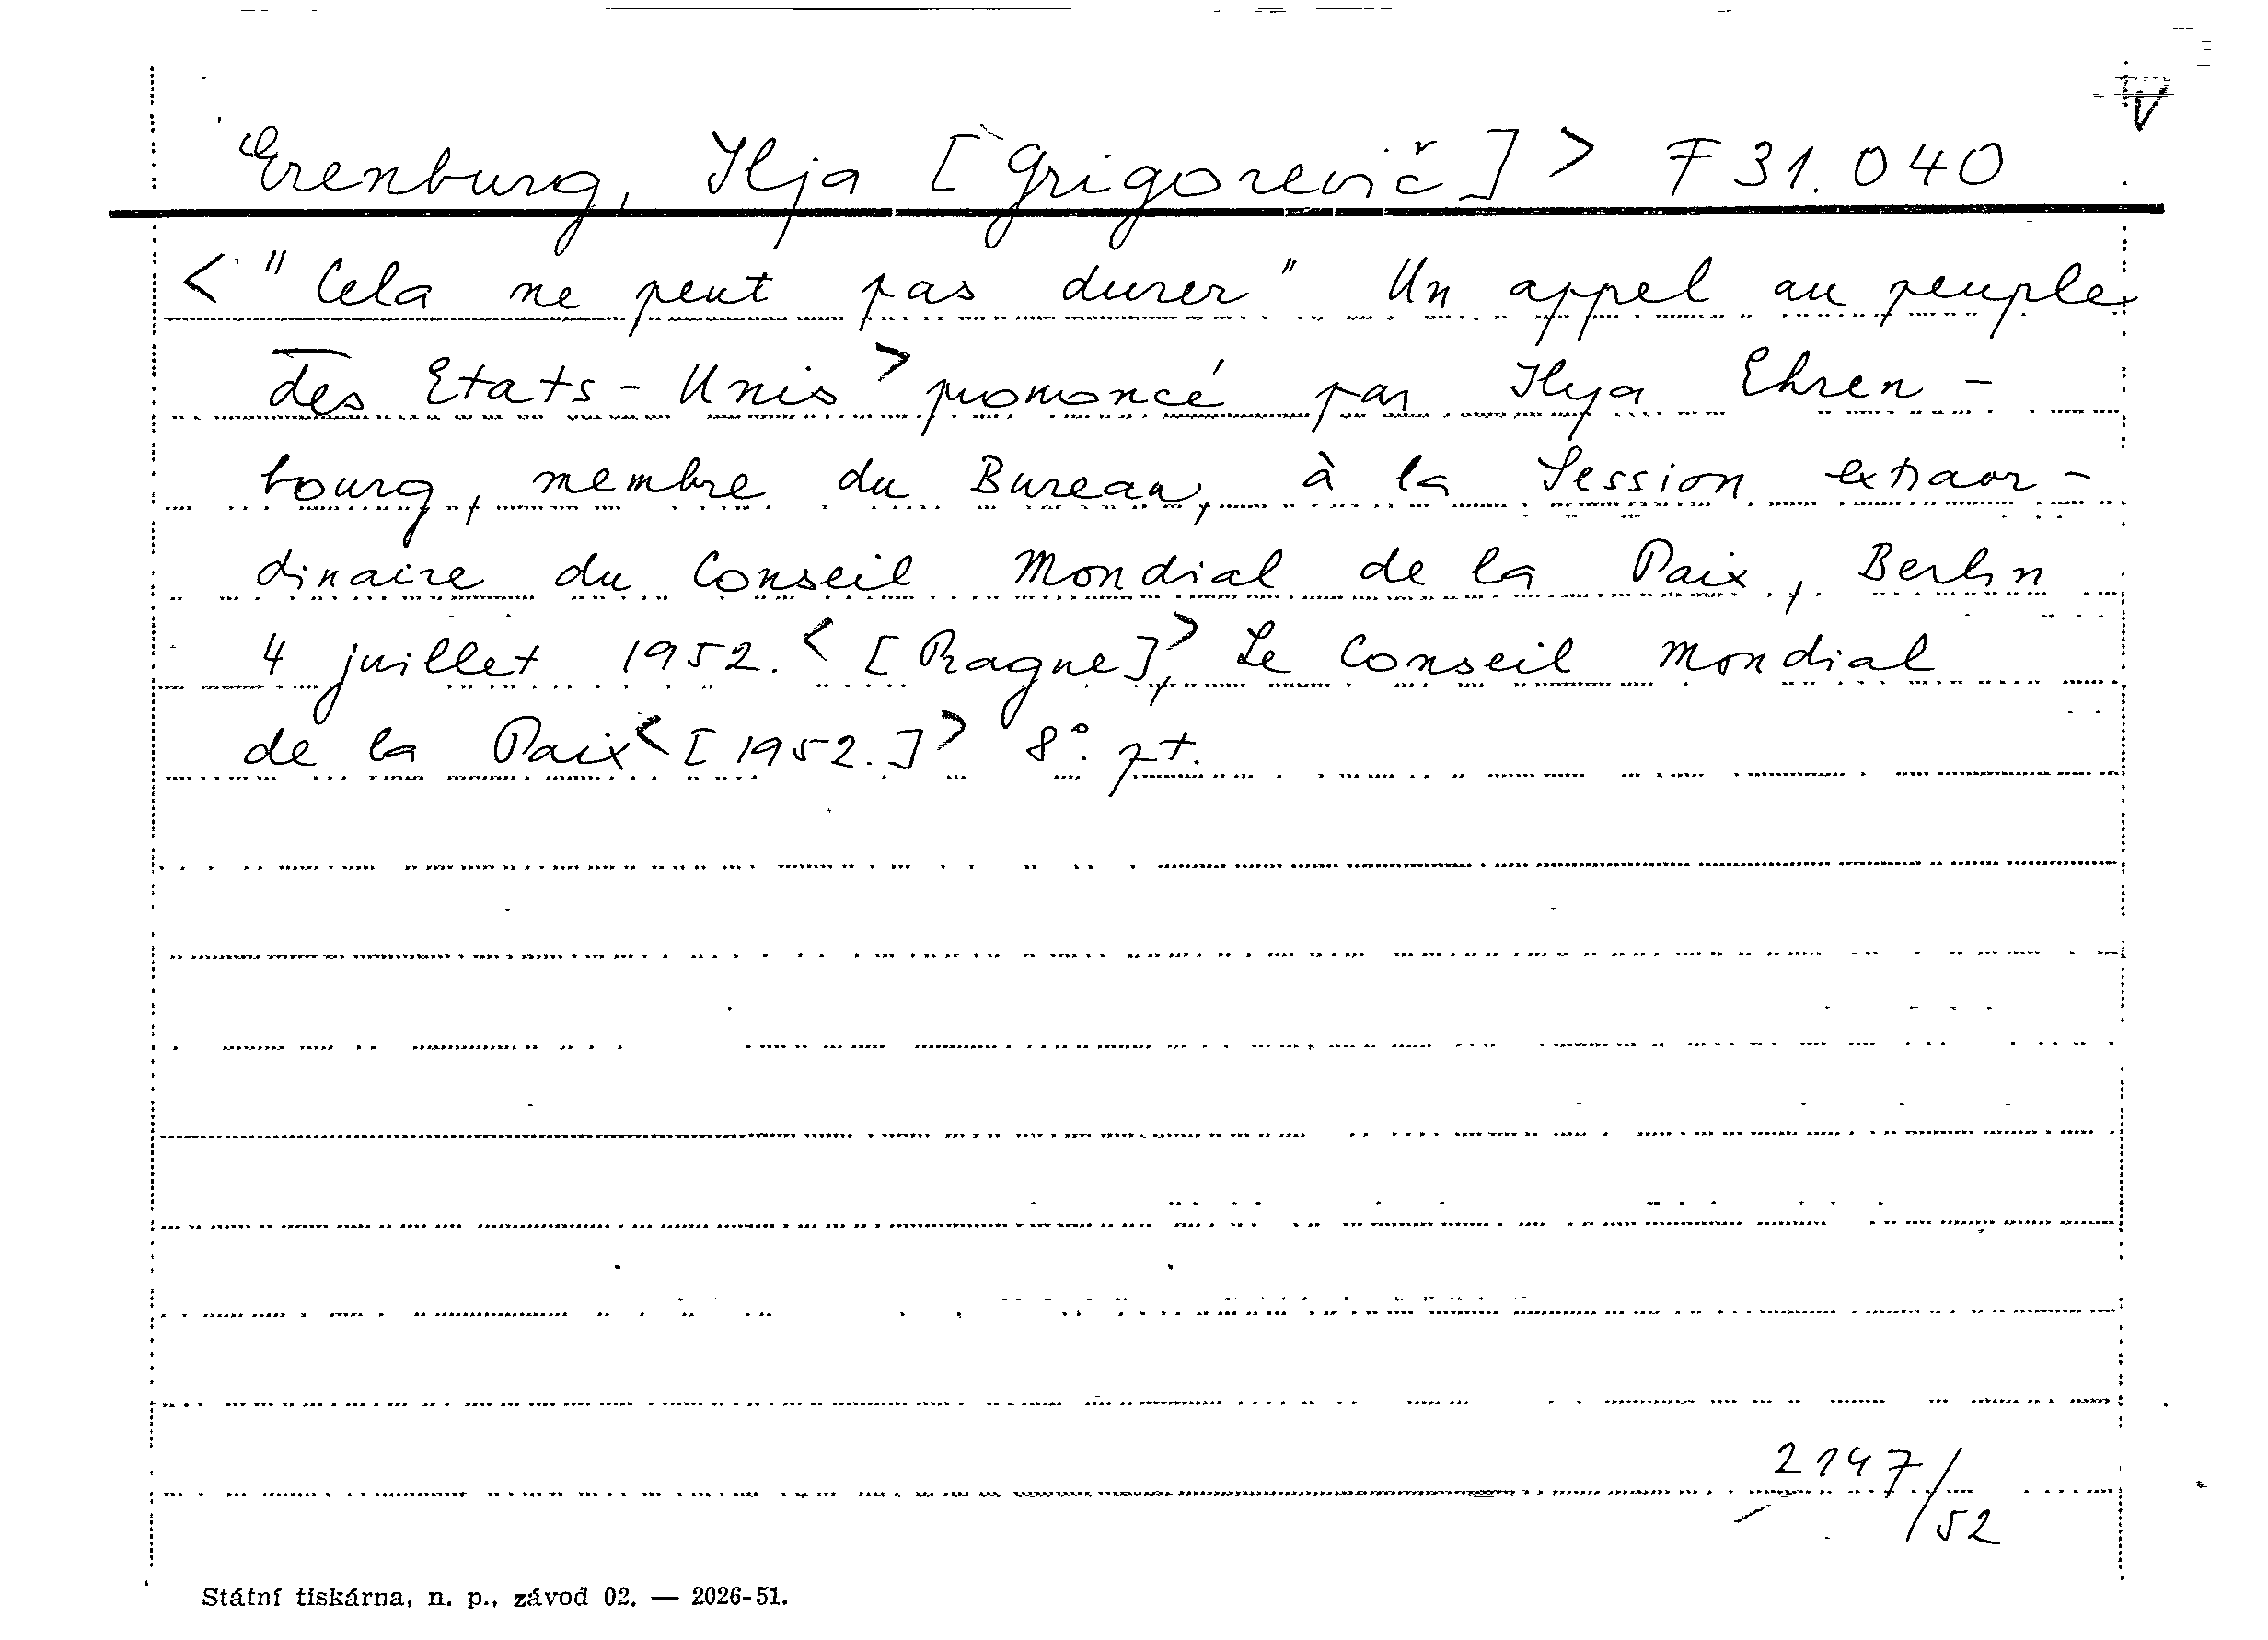 Erenburg, Ilja [Grigorevič] > F 31.040
< "Cela ne peut pas durer" Un appel au peuple
des Etats-Unis > prononcé par Ilya Ehren-
bourg, membre du Bureau, à la Session extraor-
dinaire du Conseil Mondial de la Paix, Berlin
4 juillet 1952. < [Prague], > Le Conseil Mondial
de la Paix < [1952.] > 8°. pt.
2147/52
Státní tiskárna, n. p., závod 02. — 2026-51.